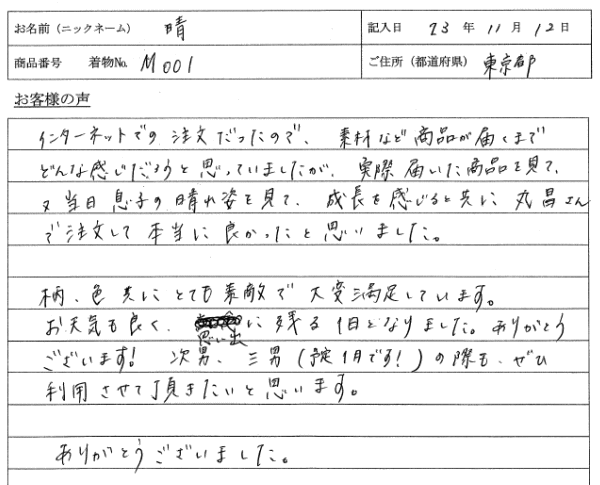 お名前（ニックネーム） 晴 記入日 23 年 11 月 12 日
商品番号 着物No. M001 ご住所（都道府県） 東京都
お客様の声
インターネットでの注文だったので、素材など商品が届くまで
どんな感じだろうと思っていましたが、実際届いた商品を見て、
又当日息子の晴れ姿を見て、成長を感じると共に丸昌さん
で注文して本当に良かったと思いました。
柄、色共にとても素敵で大変満足しています。
お天気も良く、思い出に残る1日となりました。ありがとう
ございます！ 次男、三男（予定1月です！）の際も、ぜひ
利用させて頂きたいと思います。
ありがとうございました。